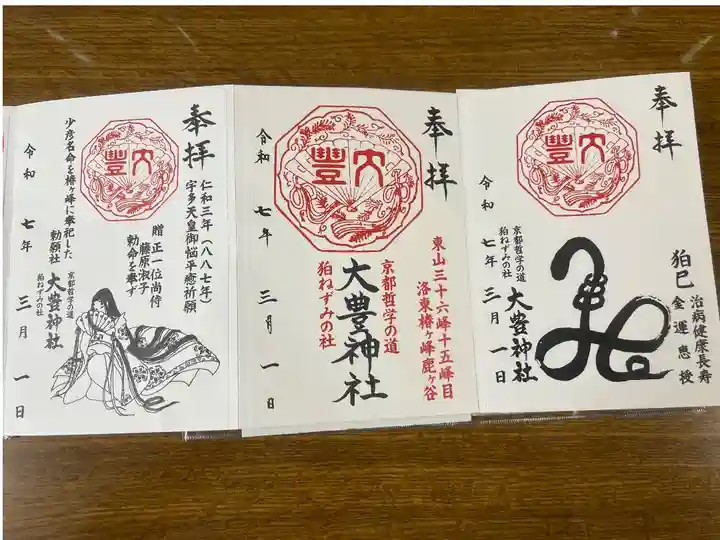 奉拝
仁和三年（八八七年）
宇多天皇御悩平癒祈願
贈正一位尚侍
藤原淑子
勅命を奉ず
大豊
少彦名命を椿ヶ峰に奉祀した
勅願社
京都哲学の道
狛ねずみの社
大豊神社
令和七年三月一日
奉拝
東山三十六峰十五峰目
洛東椿ヶ峰鹿ヶ谷
大豊
京都哲学の道
大豊神社
狛ねずみの社
令和七年三月一日
奉拝
狛巳
治病健康長寿
金運恵授
大豊
京都哲学の道
狛ねずみの社
大豊神社
令和七年三月一日